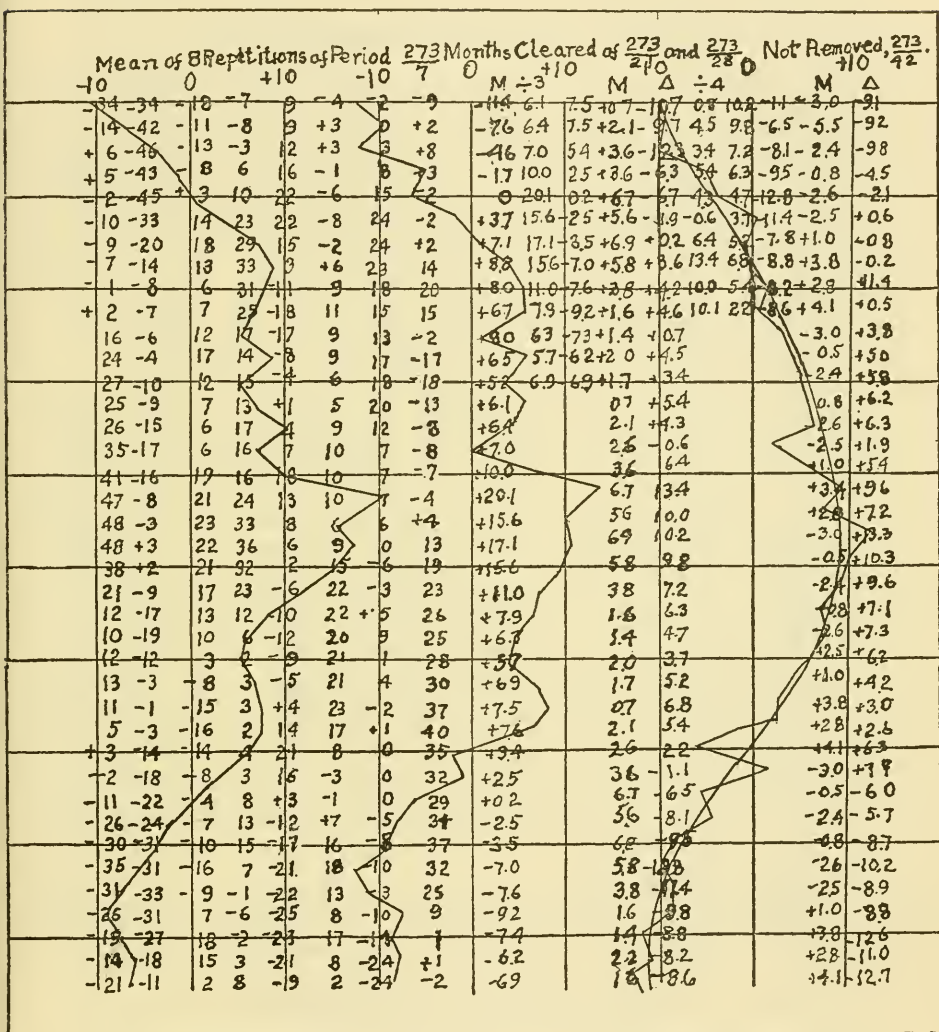 Mean of 8 Repttitions of Period 273/7 Months Cleared of 273/210 and 273/28 Not Removed, 273/42.
-10 0 +10 -10 0 +10 0 +10
M ÷3 M Δ ÷4 M Δ
-34 -34 -18 -7 9 -4 -2 -9 -11.4 6.1 7.5 +0.7 -10.7 0.8 10.2 -1.1 -3.0 -9.1
-14 -42 -11 -8 9 +3 0 +2 -7.6 6.4 7.5 +2.1 -9.7 4.5 9.8 -6.5 -5.5 -9.2
+6 -46 -13 -3 12 +3 3 +8 -4.6 7.0 5.4 +3.6 -12.3 3.4 7.2 -8.1 -2.4 -9.8
+5 -43 -8 6 16 -1 8 -3 -1.7 10.0 2.5 +3.6 -6.3 5.4 6.3 -9.5 -0.8 -4.5
-2 -45 +3 10 22 -6 15 -2 0 20.1 0.2 +6.7 -6.7 4.3 4.7 -12.8 -2.6 -2.1
-10 -33 14 23 22 -8 24 -2 +3.7 15.6 -2.5 +5.6 -1.9 -0.6 3.7 -11.4 -2.5 +0.6
-9 -20 18 29 15 -2 24 +2 +7.1 17.1 -3.5 +6.9 +0.2 6.4 5.2 -7.8 +1.0 -0.8
-7 -14 13 33 3 +6 23 14 +8.8 15.6 -7.0 +5.8 +3.6 13.4 6.8 -8.8 +3.8 -0.2
-1 -8 6 31 -11 9 18 20 +8.0 11.0 -7.6 +3.8 +4.2 10.0 5.4 -8.2 +2.8 +1.4
+2 -7 7 25 -18 11 15 15 +6.7 7.9 -9.2 +1.6 +4.6 10.1 2.2 -8.6 +4.1 +0.5
16 -6 12 17 -17 9 13 -2 +8.0 6.3 -7.3 +1.4 +0.7 -3.0 +3.8
24 -4 17 14 -8 9 17 -17 +6.5 5.7 -6.2 +2.0 +4.5 -0.5 +5.0
27 -10 12 15 -4 6 18 -18 +5.2 6.9 -6.9 +1.7 +3.4 -2.4 +5.8
25 -9 7 13 +1 5 20 -13 +6.1 0.7 +5.4 0.8 +6.2
26 -15 6 17 4 9 12 -8 +6.4 2.1 +4.3 2.6 +6.3
35 -17 6 16 7 10 7 -8 +7.0 2.6 -0.6 -2.5 +1.9
41 -16 19 16 18 10 7 -7 +10.0 3.6 6.4 +1.0 +5.4
47 -8 21 24 13 10 7 -4 +20.1 6.7 13.4 +3.4 +9.6
48 -3 23 33 8 6 6 +4 +15.6 5.6 10.0 +2.8 +7.2
48 +3 22 36 6 9 0 13 +17.1 6.9 10.2 -3.0 +13.3
38 +2 21 32 2 15 -6 19 +15.6 5.8 9.8 -0.5 +10.3
21 -9 17 23 -6 22 -3 23 +11.0 3.8 7.2 -2.4 +9.6
12 -17 13 12 -10 22 +5 26 +7.9 1.6 6.3 -0.8 +7.1
10 -19 10 6 -12 20 9 25 +6.3 1.4 4.7 -2.6 +7.3
12 -12 3 2 -9 21 1 28 +5.7 2.0 3.7 -2.5 +6.2
13 -3 -8 3 -5 21 4 30 +6.9 1.7 5.2 +1.0 +4.2
11 -1 -15 3 +4 23 -2 37 +7.5 0.7 6.8 +3.8 +3.0
5 -3 -16 2 14 17 +1 40 +7.6 2.1 5.4 +2.8 +2.6
+3 -14 -14 4 21 8 0 35 +3.4 2.6 2.2 +4.1 +6.3
-2 -18 -8 3 16 -3 0 32 +2.5 3.6 -1.1 -3.0 +7.9
-11 -22 -4 8 +3 -1 0 29 +0.2 6.7 -6.5 -0.5 -6.0
-26 -24 -7 13 -12 +7 -5 34 -2.5 5.6 -8.1 -2.4 -5.7
-30 -31 -10 15 -17 16 -8 37 -3.5 -0.8 -8.7
-35 -31 -16 7 -21 18 -10 32 -7.0 5.8 -2.6 -10.2
-31 -33 -9 -1 -22 13 -3 25 -7.6 3.8 -11.4 -2.5 -8.9
-26 -31 7 -6 -25 8 -10 9 -9.2 1.6 -9.8 +1.0 -8.8
-19 -27 18 -2 -23 17 -14 1 -7.4 1.4 -8.8 +3.8 -12.6
-14 -18 15 3 -21 8 -24 +1 -6.2 2.2 -8.2 +2.8 -11.0
-21 -11 2 8 -19 2 -24 -2 -6.9 -8.6 +4.1 -12.7